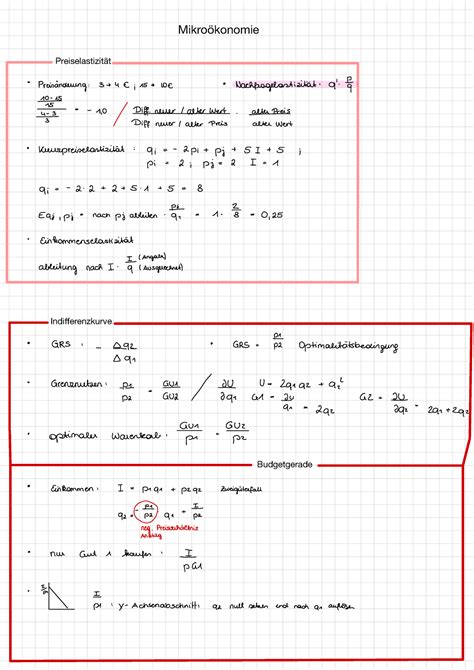 Mikroökonomie
Preiselastizität
• Preisänderung: 3 → 4 € ; 15 → 10€ • Nachfrageelastizität: q' · p/q
(10-15)/15 / (4-3)/3 = -1,0 / Diff neuer / alter Wert / Diff neuer / alter Preis · alter Preis / alter Wert
• Kreuzpreiselastizität: qi = -2pi + pj + 5I + 5 ;
pi = 2 ; pj = 2 I = 1
qi = -2·2 + 2 + 5·1 + 5 = 8
Eqi, pj = nach pj ableiten · pj/q1 = 1 · 2/8 = 0,25
• Einkommenselastizität
ableitung nach I · I (Angabe) / q (Ausgerechnet)
Indifferenzkurve
• GRS: - Δq2 / Δq1 • GRS = p1/p2 Optimalitätsbedingung
• Grenznutzen: p1/p2 = GU1/GU2 / ∂U/∂q1 U = 2q1q2 + q2² G1 = ∂U/q1 = 2q2 G2 = ∂U/∂q2 = 2q1+2q2
• optimaler Warenkorb: GU1/p1 = GU2/p2
Budgetgerade
• Einkommen: I = p1q1 + p2q2 Zweigüterfall
q2 = -p1/p2 q1 + I/p2
neg. Preisverhältnis
Anstieg
• nur Gut 1 kaufen: I / pG1
• I/p1: y-Achsenabschnitt: q2 null setzen und nach q1 auflösen